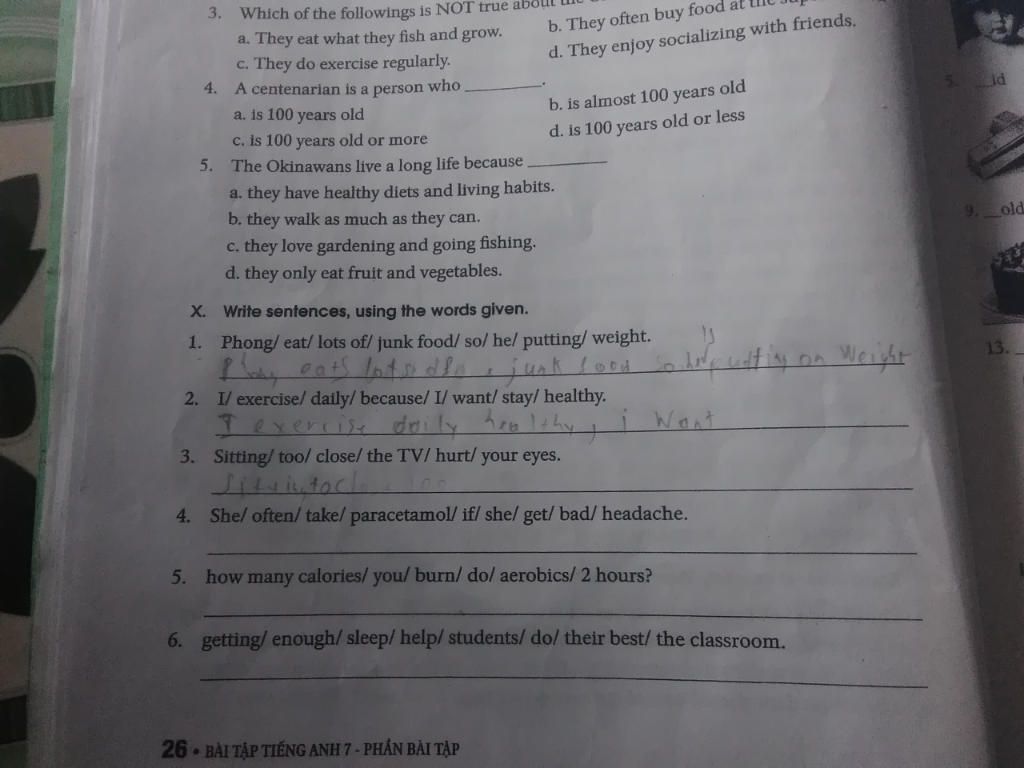 3. Which of the followings is NOT true about the
a. They eat what they fish and grow.
b. They often buy food at the
c. They do exercise regularly.
d. They enjoy socializing with friends.
4. A centenarian is a person who ________.
a. is 100 years old
b. is almost 100 years old
c. is 100 years old or more
d. is 100 years old or less
5. The Okinawans live a long life because ________
a. they have healthy diets and living habits.
b. they walk as much as they can.
c. they love gardening and going fishing.
d. they only eat fruit and vegetables.
X. Write sentences, using the words given.
1. Phong/ eat/ lots of/ junk food/ so/ he/ putting/ weight.
is
eats junk food so he putting on Weight
2. I/ exercise/ daily/ because/ I/ want/ stay/ healthy.
I exercise daily healthy, i Want
3. Sitting/ too/ close/ the TV/ hurt/ your eyes.
4. She/ often/ take/ paracetamol/ if/ she/ get/ bad/ headache.
5. how many calories/ you/ burn/ do/ aerobics/ 2 hours?
6. getting/ enough/ sleep/ help/ students/ do/ their best/ the classroom.
26 • BÀI TẬP TIẾNG ANH 7 - PHẦN BÀI TẬP
5. __id
9. __old
13. _